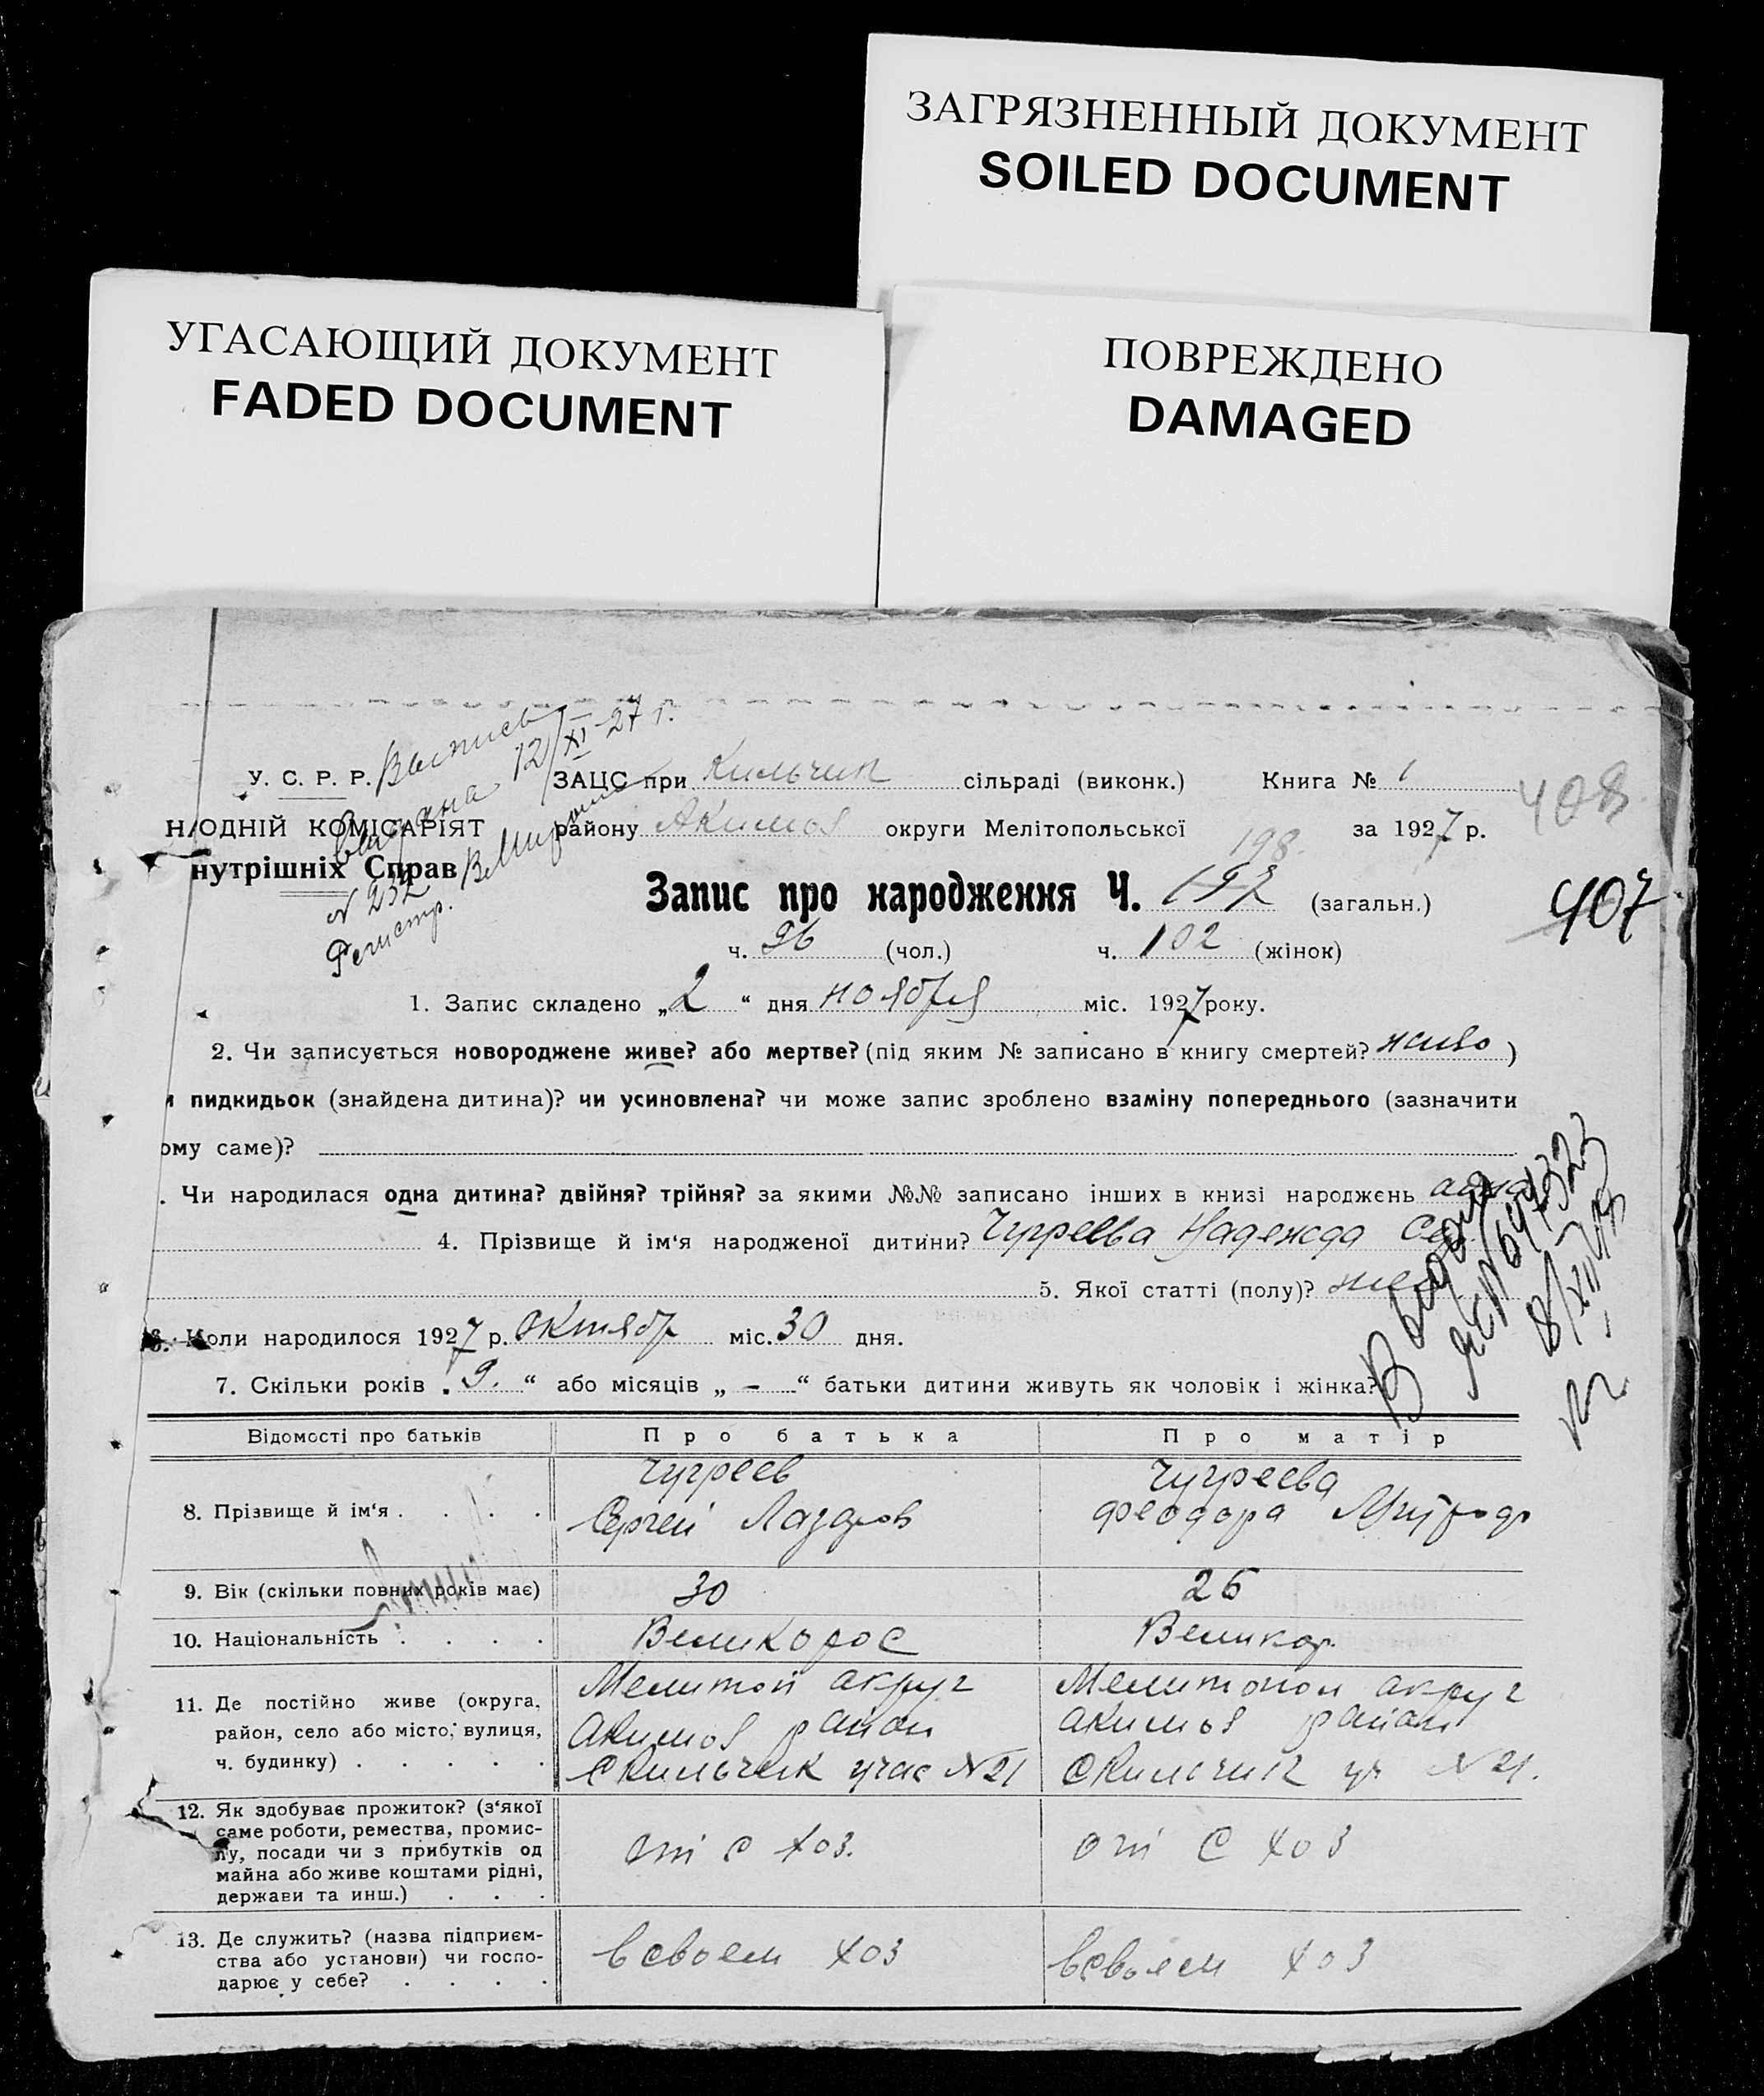 ЗАГРЯЗНЕННЫЙ ДОКУМЕНТ
SOILED DOCUMENT
УГАСАЮЩИЙ ДОКУМЕНТ
FADED DOCUMENT
ПОВРЕЖДЕНО
DAMAGED
Выпись
выдана 12/XI-27 г.
N 232
Регистр.
У. С. Р. Р.
ЗАЦС при Кильчик сільраді (виконк.) Книга № 1
408
Н/ОДНІЙ КОМІСАРІЯТ
району Акимов округи Мелітопольської за 1927 р.
нутрішніх Справ
198.
Запис про народження Ч. 197 (загальн.)
407
ч. 96 (чол.) ч. 102 (жінок)
1. Запис складено „2“ дня ноября міс. 1927 року.
2. Чи записується новороджене живе? або мертве? (під яким № записано в книгу смертей? живо)
и пидкидьок (знайдена дитина)? чи усиновлена? чи може запис зроблено взаміну попереднього (зазначити
ому саме)?
. Чи народилася одна дитина? двійня? трійня? за якими №№ записано інших в книзі народжень одна
4. Прізвище й ім'я народженої дитини? Чугреева Надежда Сер
5. Якої статті (полу)? жен
6. Коли народилося 1927 р. октябр міс. 30 дня.
7. Скільки років „9.“ або місяців „ - “ батьки дитини живуть як чоловік і жінка?
Відомості про батьків
Про батька
Про матір
8. Прізвище й ім'я . . . .
Чугреев
Сергей Лазаров
Чугреева
Феодора Митрод
9. Вік (скільки повних років має)
30
26
10. Національність . . . .
Великорос
Великор.
11. Де постійно живе (округа,
район, село або місто, вулиця,
ч. будинку) . . . . .
Мелитоп округ
Акимов район
С Кильчик учас N 21
Мелитопол округ
Акимов район
С Кильчик уч N 21.
12. Як здобуває прожиток? (з'якої
саме роботи, ремества, промис-
лу, посади чи з прибутків од
майна або живе коштами рідні,
держави та инш.) . . .
от с хоз.
от с хоз
13. Де служить? (назва підприєм-
ства або установи) чи госпо-
дарює у себе? . . . .
в своем хоз
в своем хоз